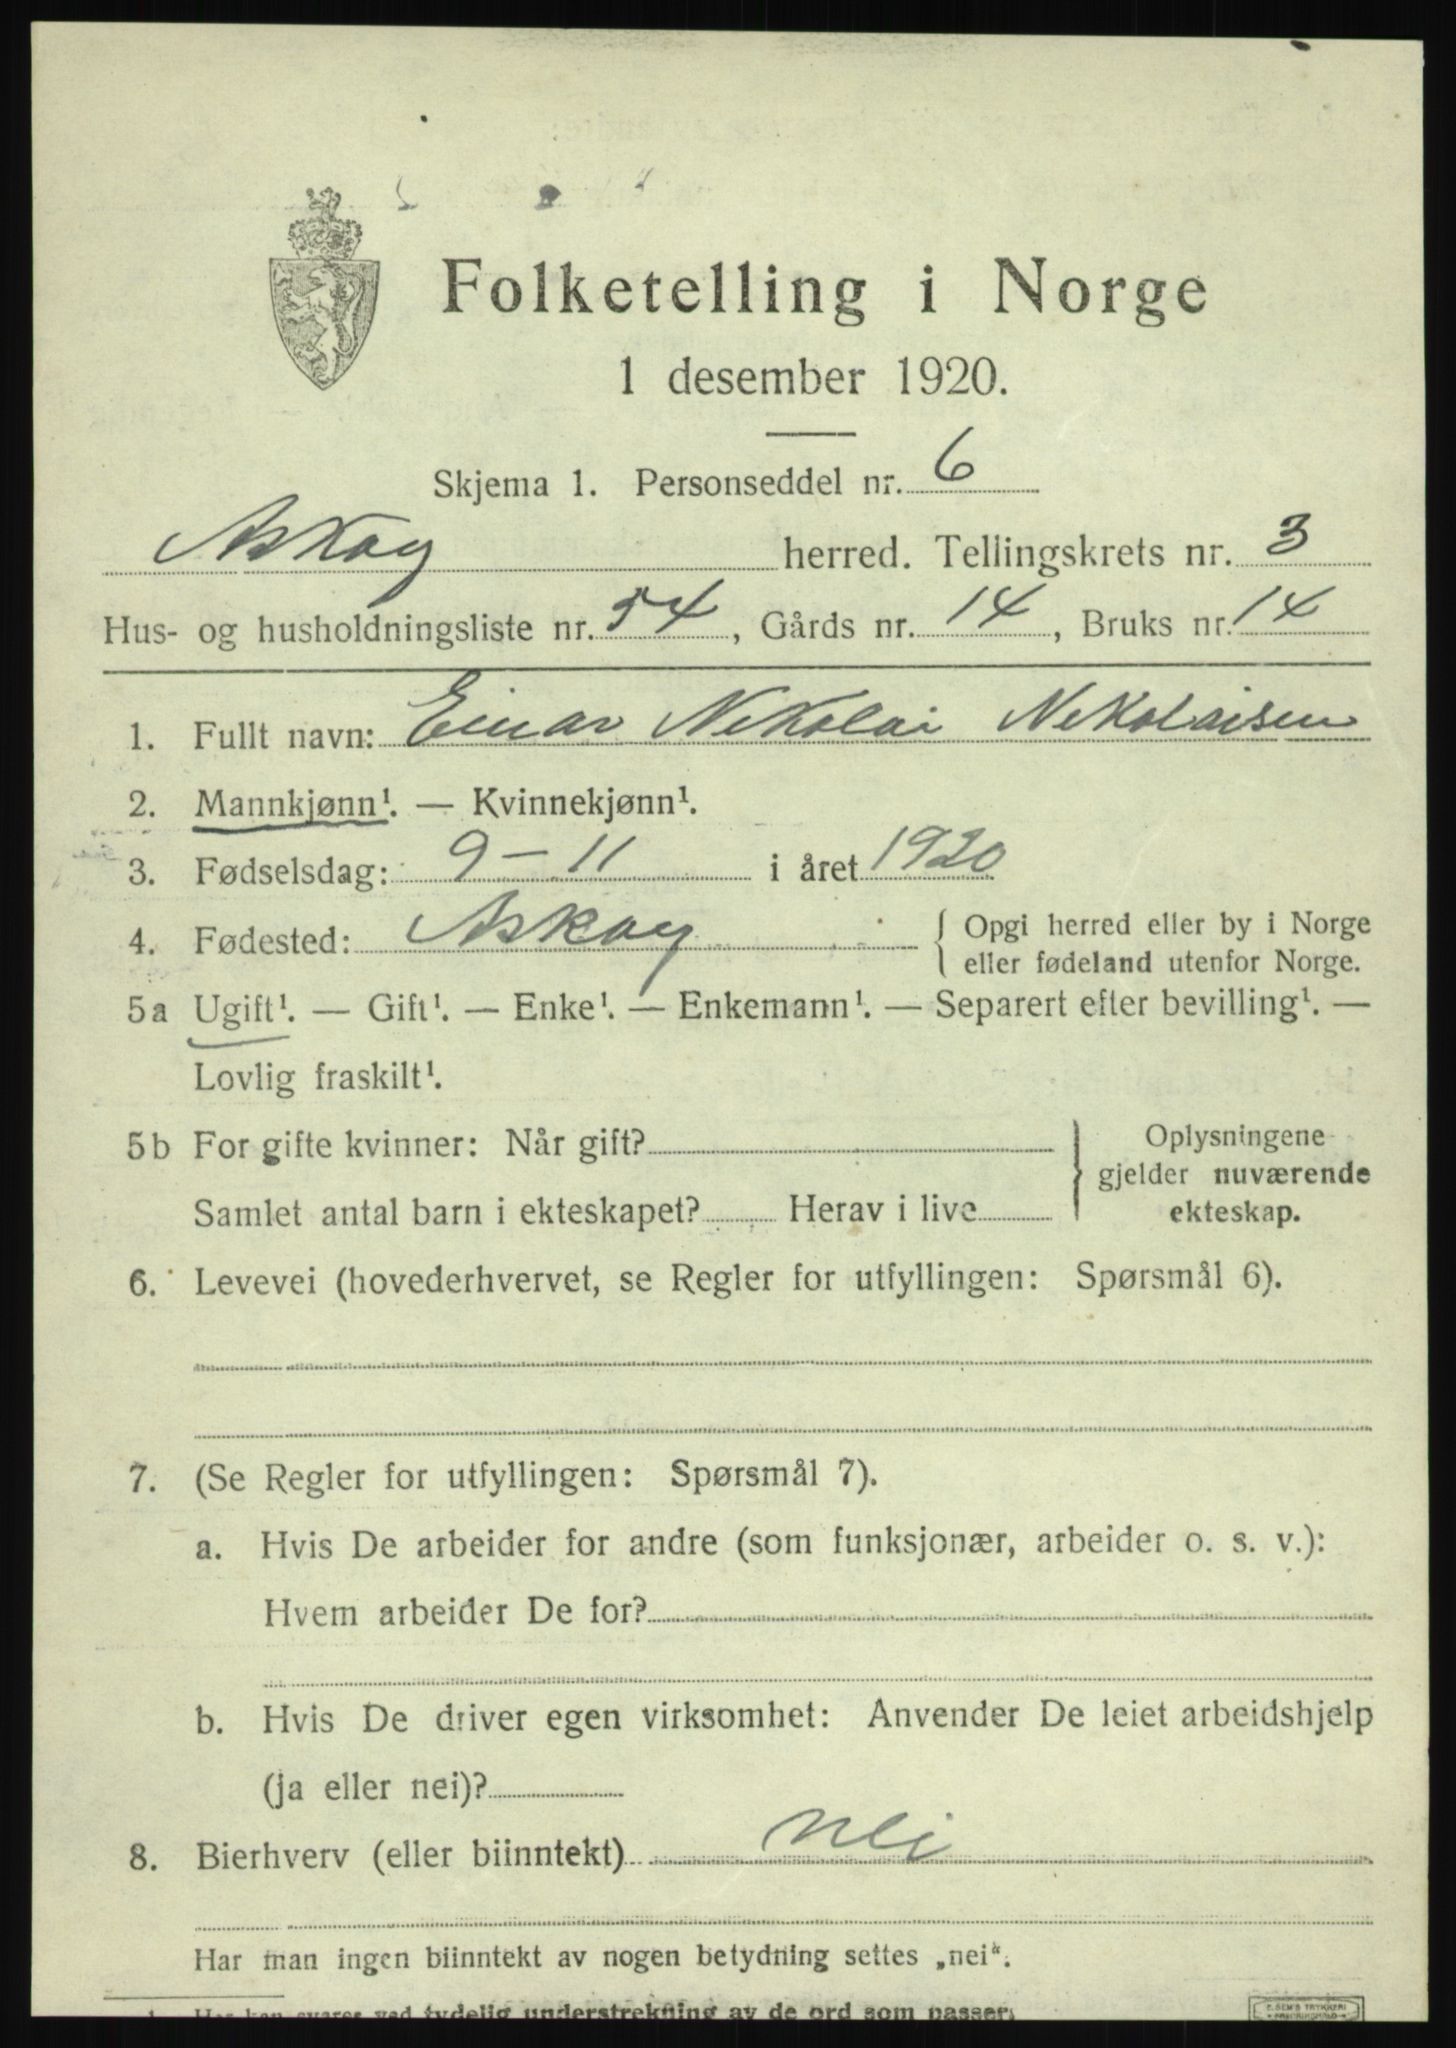 Folketelling i Norge
1 desember 1920.
Skjema 1. Personseddel nr. 6
Askøy herred. Tellingskrets nr. 3
Hus- og husholdningsliste nr. 54, Gårds nr. 14, Bruks nr. 14
1. Fullt navn: Einar Nikolai Nikolaisen
2. Mannkjønn¹. — Kvinnekjønn¹.
3. Fødselsdag: 9 - 11 i året 1920
4. Fødested: Askøy { Opgi herred eller by i Norge
eller fødeland utenfor Norge.
5a Ugift¹. — Gift¹. — Enke¹. — Enkemann¹. — Separert efter bevilling¹. —
Lovlig fraskilt¹.
5b For gifte kvinner: Når gift? } Oplysningene
gjelder nuværende
Samlet antal barn i ekteskapet? Herav i live ekteskap.
6. Levevei (hovederhvervet, se Regler for utfyllingen: Spørsmål 6).
7. (Se Regler for utfyllingen: Spørsmål 7).
a. Hvis De arbeider for andre (som funksjonær, arbeider o. s. v.):
Hvem arbeider De for?
b. Hvis De driver egen virksomhet: Anvender De leiet arbeidshjelp
(ja eller nei)?
8. Bierhverv (eller biinntekt) nei
Har man ingen biinntekt av nogen betydning settes „nei“.
1 Her kan svares ved tydelig understrekning av de ord som passer.
E. SEM'S TRYKKERI
FREDRIKSHALD